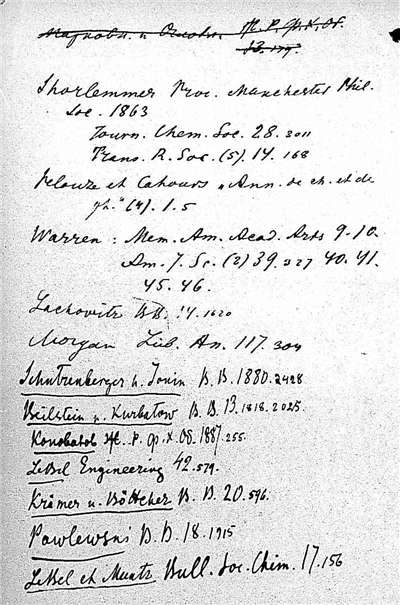 Марковн. и Оглобл. Ж. Р. Ф. Х. Об.
13. 179.
Shorlemmer Proc. Manchester Phil.
Soc. 1863
Journ. Chem. Soc. 28. 3011
Trans. R. Soc. (5). 14. 168
Pelouze et Cahours „Ann. de ch. et de
ph." (4). 1. 5
Warren : Mem. Am. Acad. Arts 9. 10.
Am. J. Sc. (2) 39. 327 40. 41.
45. 46.
Lachovitz B. B. 1620
Morgan Lieb. An. 117. 304
Schutzenberger u. Jonin B. B. 1880. 2428
Beilstein u. Kurbatow B. B. 13. 1818. 2028
Коновалов Ж. Р. Ф. Х. Об. 1887. 255.
LeBel Engineering 42. 579.
Krämer u. Böttcher B. B. 20. 596.
Pawlewski B. B. 18. 1915
LeBel et Muntz Bull. Soc. Chim. 17. 156